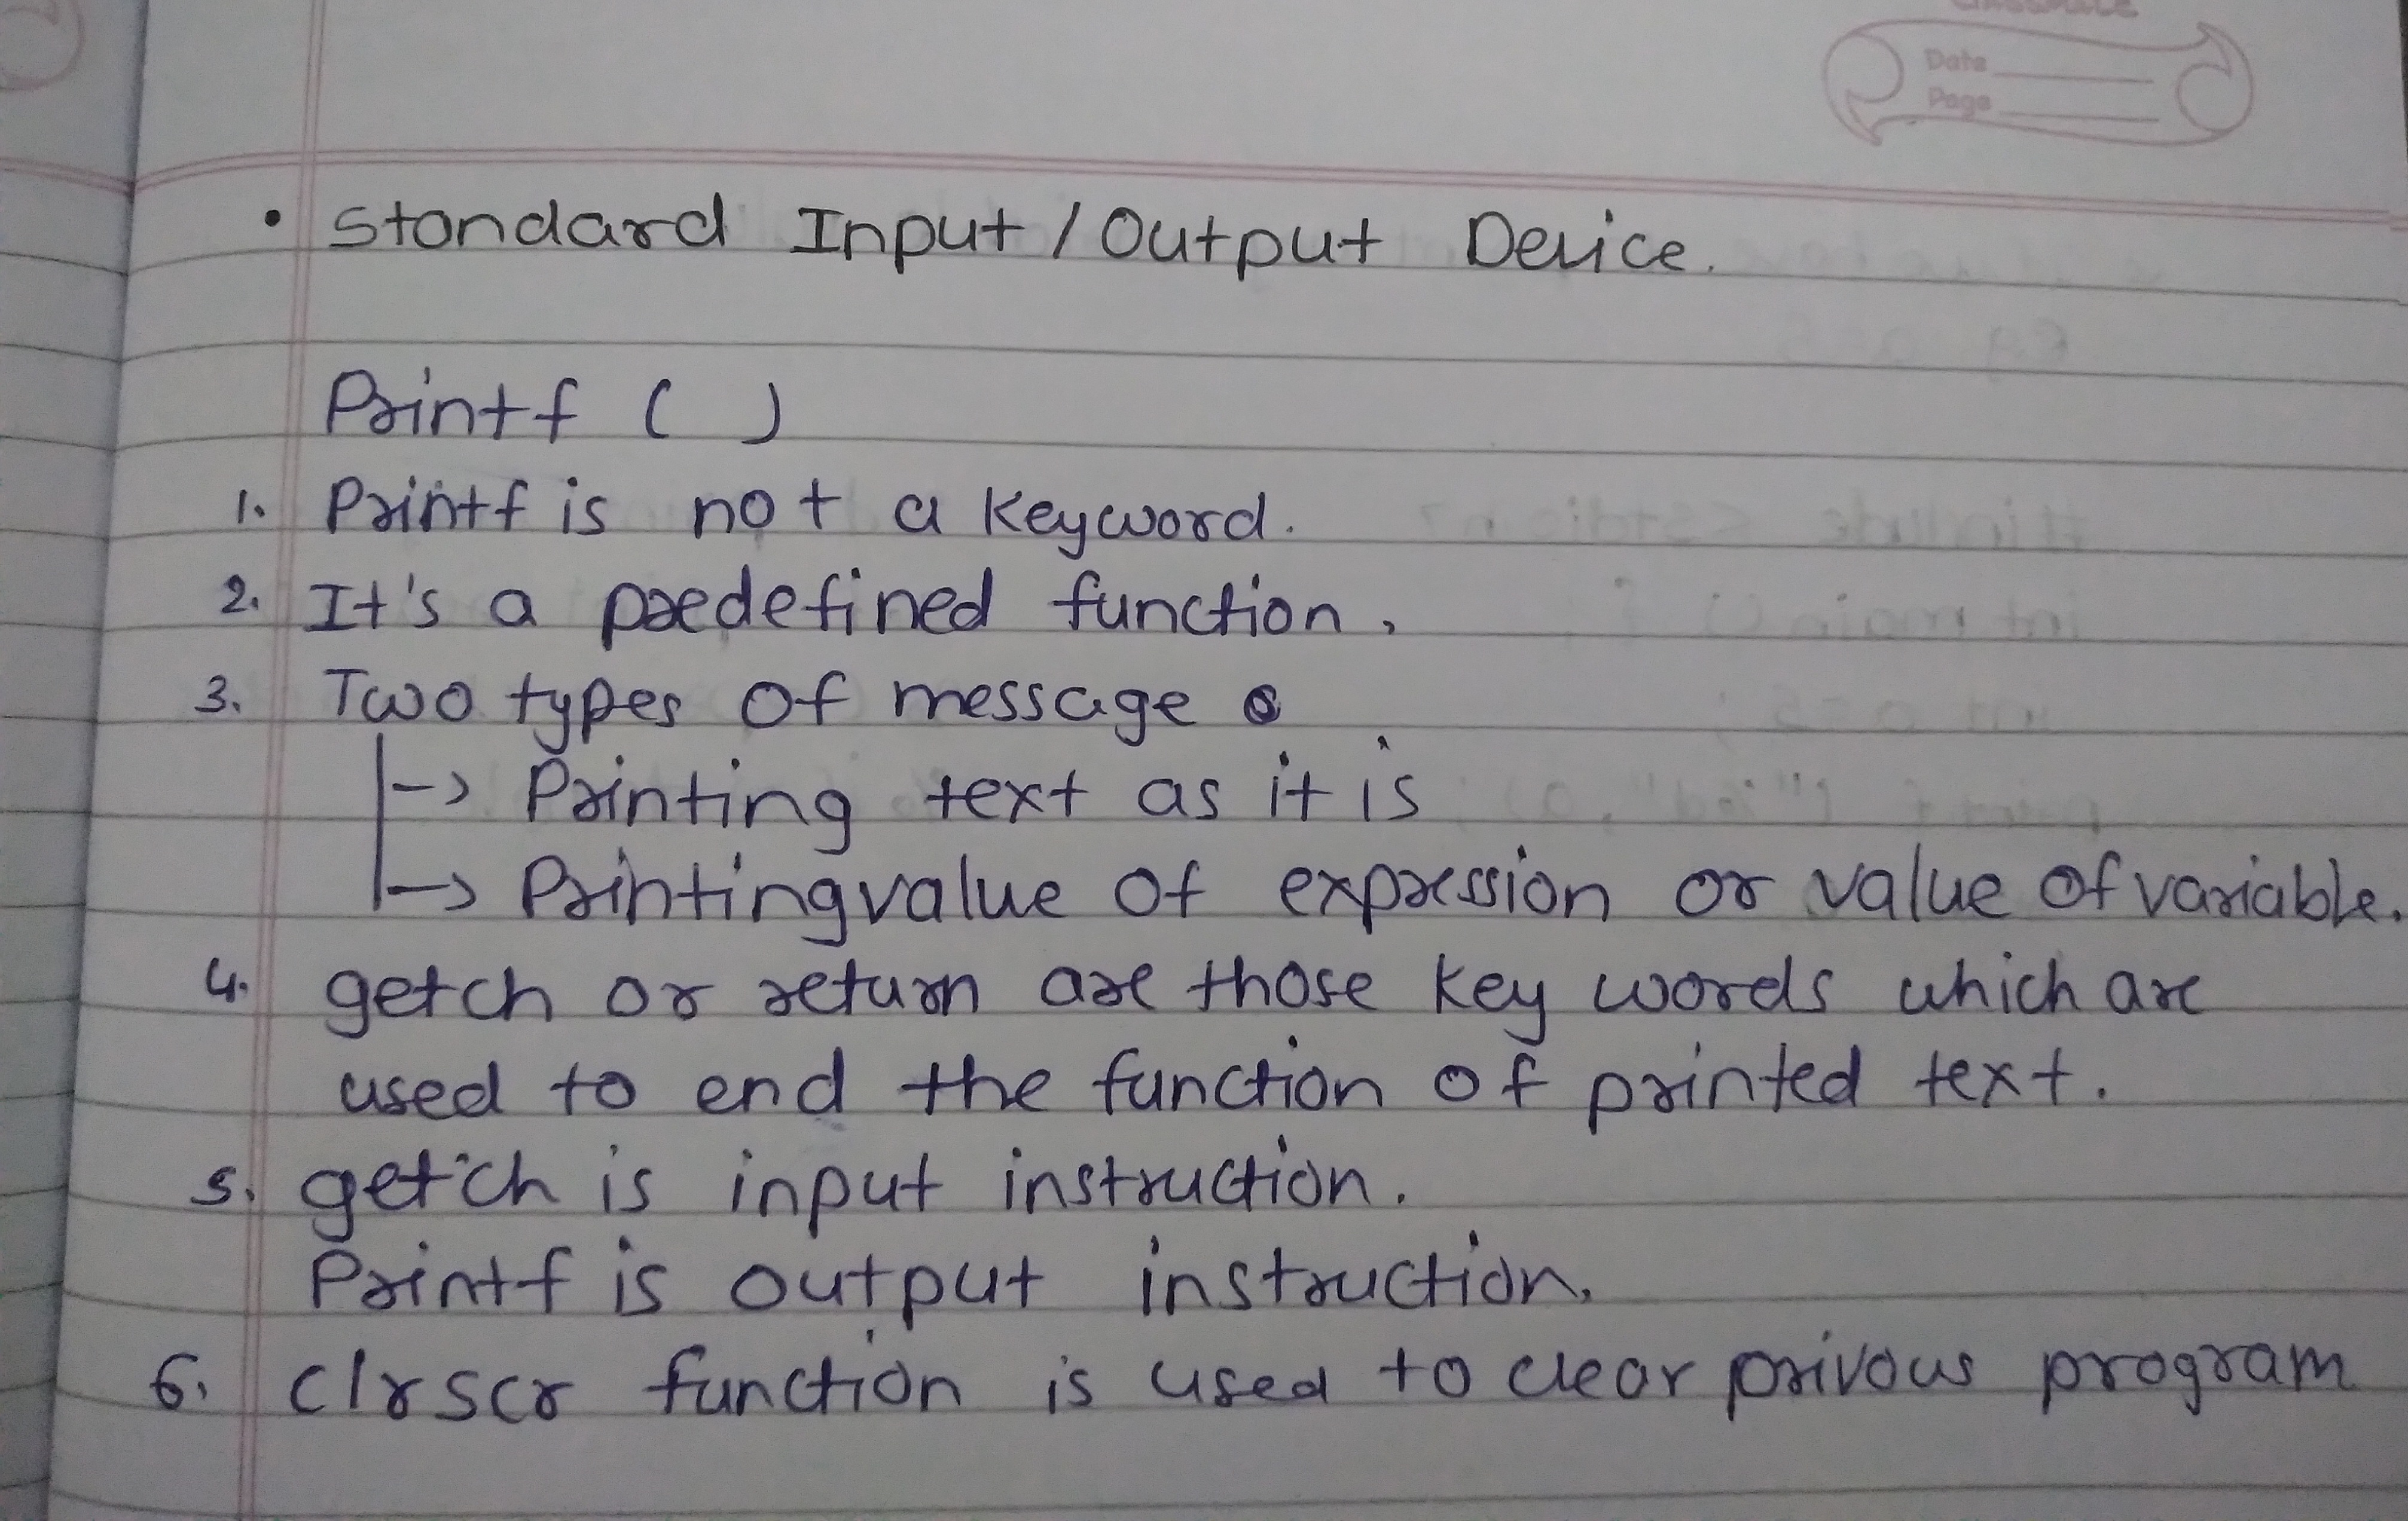 classmate
Date
Page
• Standard Input / Output Device.
Printf ( )
1. Printf is not a keyword.
2. It's a predefined function.
3. Two types of message
-> Printing text as it is
-> Printing value of expression or value of variable.
4. getch or return are those key words which are
used to end the function of printed text.
5. getch is input instruction.
Printf is output instruction.
6. clrscr function is used to clear privous program